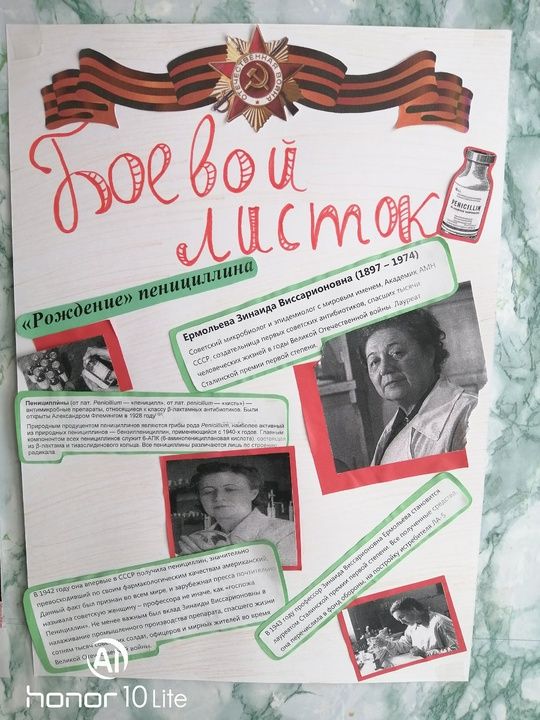 ОТЕЧЕСТВЕННАЯ ВОЙНА
Боевой
листок
PENICILLIN
«Рождение» пенициллина
Ермольева Зинаида Виссарионовна (1897 – 1974)
Советский микробиолог и эпидемиолог с мировым именем. Академик АМН
СССР, создательница первых советских антибиотиков, спасших тысячи
человеческих жизней в годы Великой Отечественной войны. Лауреат
Сталинской премии первой степени.
Пенициллины (от лат. Penicillium — «пеницилл»; от лат. penicillum — «кисть») —
антимикробные препараты, относящиеся к классу β-лактамных антибиотиков. Были
открыты Александром Флемингом в 1928 году
Природным продуцентом пенициллинов являются грибы рода Penicillium, наиболее активный
из природных пенициллинов — бензилпенициллин, применяющийся с 1940-х годов. Главным
компонентом всех пенициллинов служит 6-АПК (6-аминопенициллановая кислота), состоящая
из β-лактама и тиазолидинового кольца. Все пенициллины различаются лишь по строению
радикала.
В 1942 году она впервые в СССР получила пенициллин, значительно
превосходивший по своим фармакологическим качествам американский.
Данный факт был признан во всем мире, и зарубежная пресса почтительно
называла советскую женщину – профессора не иначе, как «госпожа
Пенициллин». Не менее важным был вклад Зинаиды Виссарионовны в
налаживание промышленного производства препарата, спасшего жизни
сотням тысяч солдат, офицеров и мирных жителей во время
Великой Отечественной войны.
В 1943 году профессор Зинаида Виссарионовна Ермольева становится
лауреатом Сталинской премии первой степени. Все полученные средства
она перечислила в фонд обороны, на постройку истребителя ЛА-5
AI
honor 10 Lite